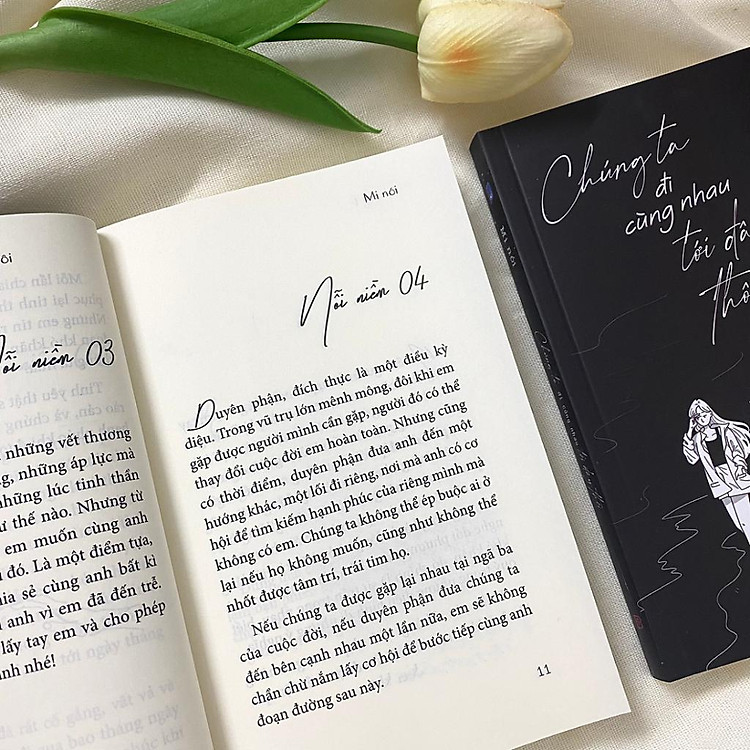 Mỗi lần chia
Nỗi niềm 03
những vết thương
những áp lực mà
những lúc tinh thần
thế nào. Nhưng từ
em muốn cùng anh
đó. Là một điểm tựa,
sẻ cùng anh bất kì
anh vì em đã đến trễ.
lấy tay em và cho phép
anh nhé!
Mi nói
Nỗi niềm 04
Duyên phận, đích thực là một điều kỳ
diệu. Trong vũ trụ lớn mênh mông, đôi khi em
gặp được người mình cần gặp, người đó có thể
thay đổi cuộc đời em hoàn toàn. Nhưng cũng
có thời điểm, duyên phận đưa anh đến một
hướng khác, một lối đi riêng, nơi mà anh có cơ
hội để tìm kiếm hạnh phúc của riêng mình mà
không có em. Chúng ta không thể ép buộc ai ở
lại nếu họ không muốn, cũng như không thể
nhốt được tâm trí, trái tim họ.
Nếu chúng ta được gặp lại nhau tại ngã ba
của cuộc đời, nếu duyên phận đưa chúng ta
đến bên cạnh nhau một lần nữa, em sẽ không
chần chừ nắm lấy cơ hội để bước tiếp cùng anh
đoạn đường sau này.
11
Chúng ta
đi
cùng nhau
tới đâ
thô
Mi nói